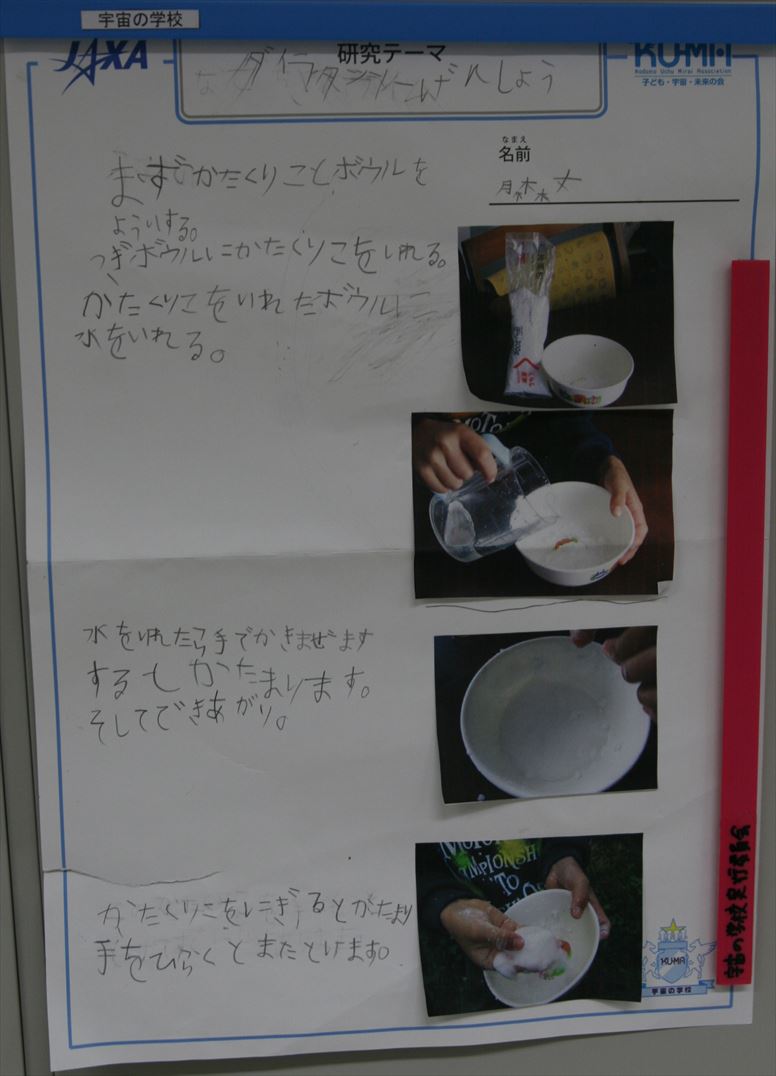 宇宙の学校
JAXA
研究テーマ
KU-MA
Kodomo Uchu Mirai Association
子ども・宇宙・未来の会
ダイラタンシーげんしょう
なまえ
名前
まずかたくりことボウルを
よういする。
つぎボウルにかたくりこをいれる。
かたくりこをいれたボウルに
水をいれる。
水をいれたら手でかきまぜます
するとかたまります。
そしてできあがり。
かたくりこをにぎるとかたまり
手をひらくとまたとけます。
KU-MA
宇宙の学校
宇宙の学校実行委員会